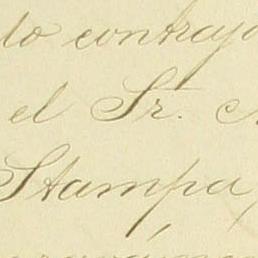 lo contrajo
el Sr.
Stampa,